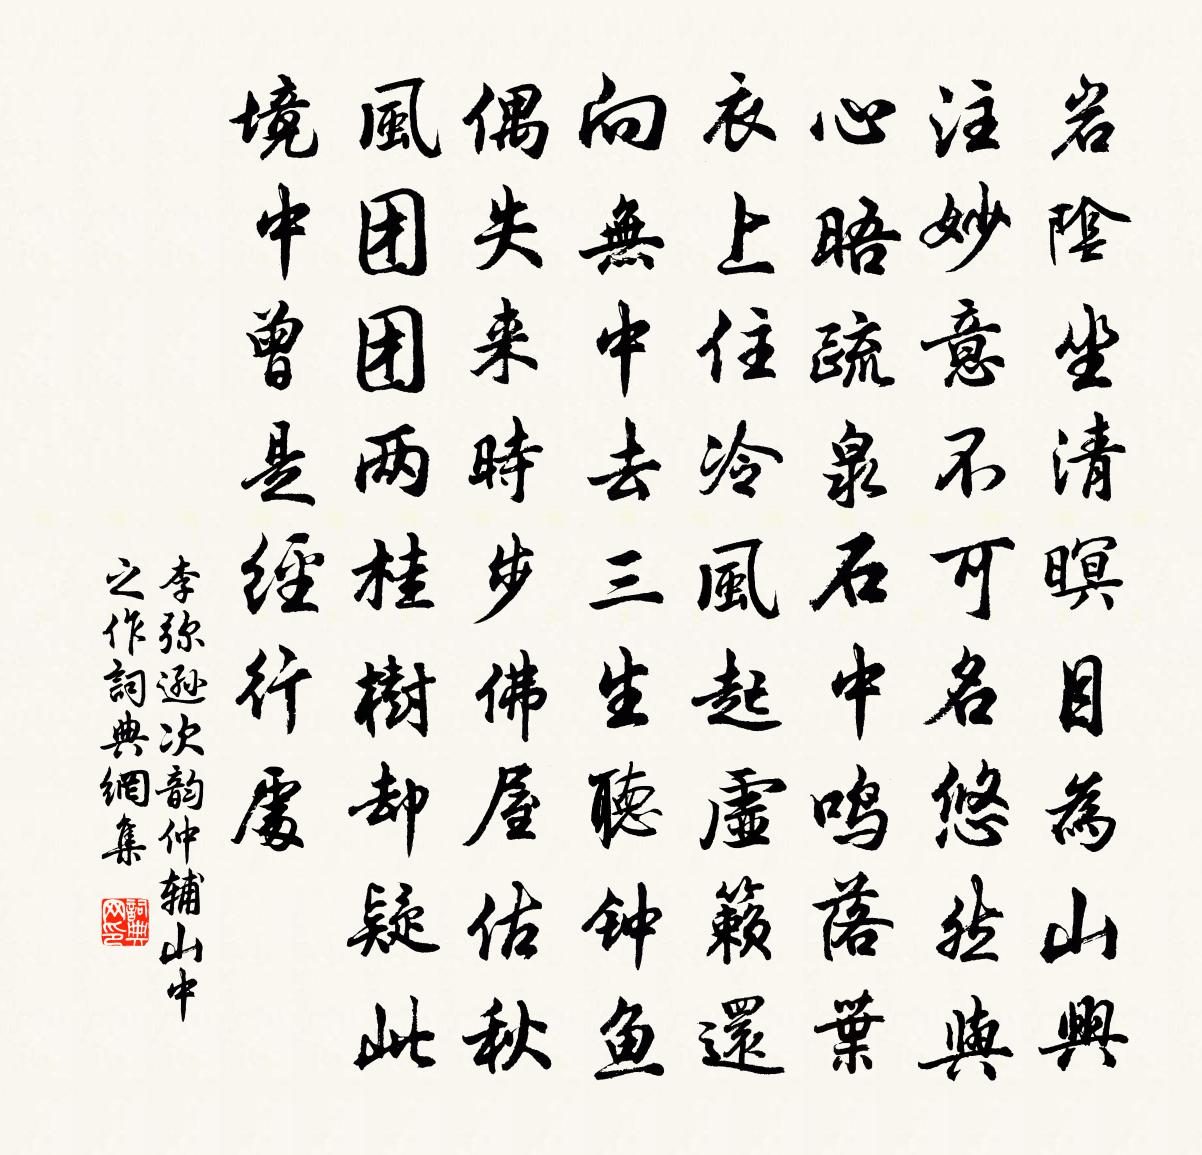 岩陰坐清暝目為山興
注妙意不可名悠然與
心晤疏泉石中鸣落葉
衣上住冷風起虛籟還
向無中去三生聽钟鱼
偶失来時步佛屋估秋
風团团两桂樹却疑此
境中曾是經行處
李弥遜次韵仲辅山中
之作詞典網集
詞典网印